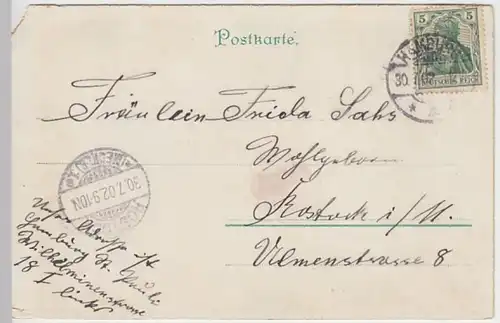 Postkarte.
5 5
DEUTSCHES REICH
HAMBURG
30.7.02
Fräulein Frida Sahs
Wohlgeboren
Rostock i/M.
Ulmenstrasse 8
30.7.02.9-10N
Unsere Adresse ist
Hamburg St. Pauli
Wilhelminenstrasse
18 I links